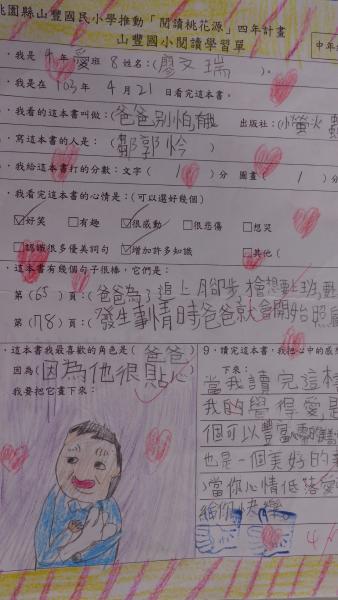 桃園縣山豐國民小學推動「閱讀桃花源」四年計畫
山豐國小閱讀學習單
中年
我是4年愛班8 姓名:(廖文瑞)。
我是在103年4月21日看完這本書。
我看的這本書叫做:(爸爸,別怕,有我 出版社:(小螢火蟲
寫這本書的人是:(鄒郭怜)
我給這本書打的分數:文字(1)分 圖畫(1)分
我看完這本書的心情是:(可以選好幾個)
☑好笑 □有趣 ☑很感動 □很悲傷 □想哭
□認識很多優美詞句 ☑增加許多知識 □其他(
這本書有幾個句子很棒,它們是:
第(65)頁:(爸爸為了追上腳步才會想要上班,
第(78)頁:(發生事情時爸爸就會開始照顧
這本書我最喜歡的角色是(爸爸)
因為(因為他很貼心
我要把它畫下來:
9.讀完這本書,我把心中的感
下來:
當我讀完這本
我的覺得愛是
個可以豐富
也是一個美好的
當你心情低落愛
給你快樂。